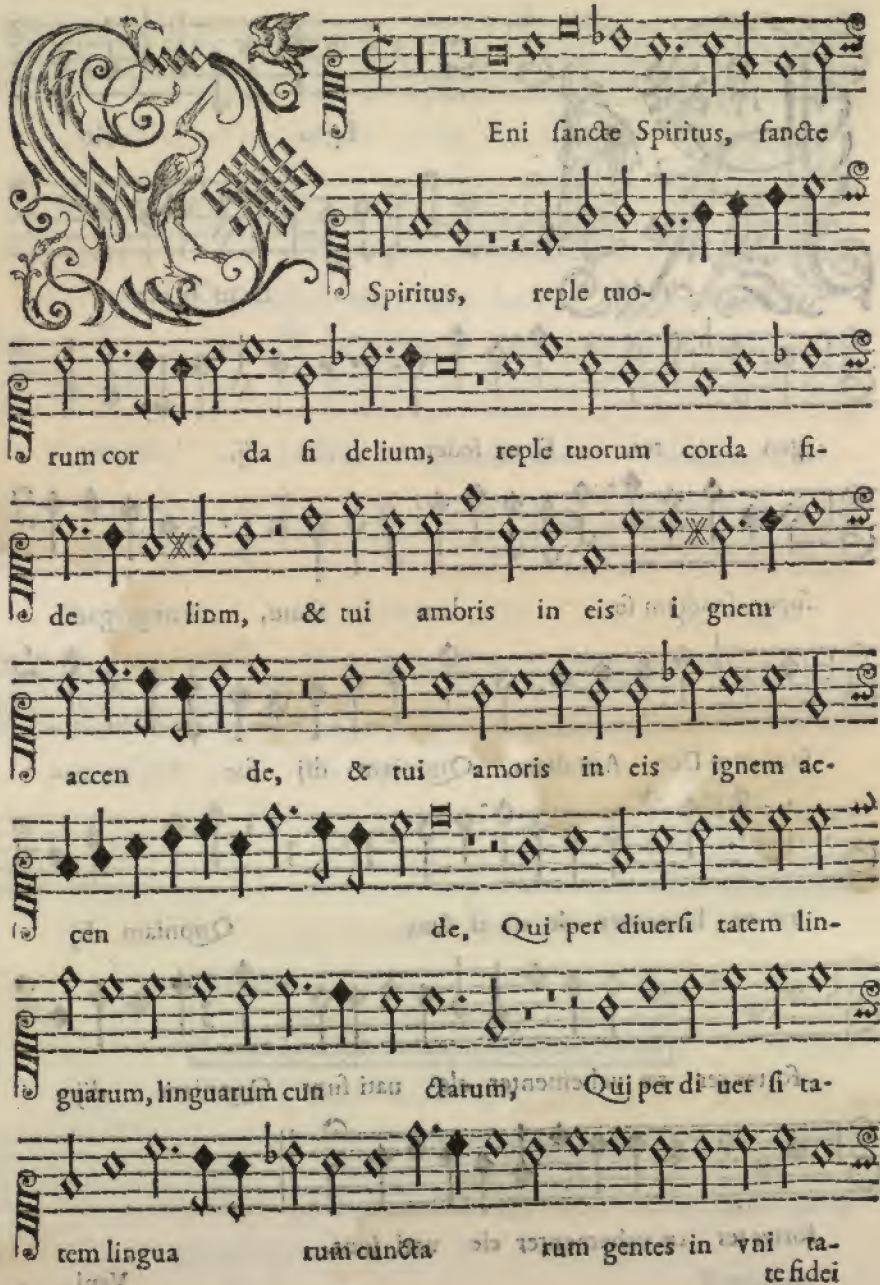 Eni ſancte Spiritus, ſancte
Spiritus, reple tuo-
rum cor da fi delium, reple tuorum corda fi-
de lium, & tui amoris in eis i gnem
accen de, & tui amoris in eis ignem ac-
cen de, Qui per diuerſi tatem lin-
guarum, linguarum cun ctarum, Qui per di uer ſi ta-
tem lingua rum cuncta rum gentes in vni ta-
te fidei